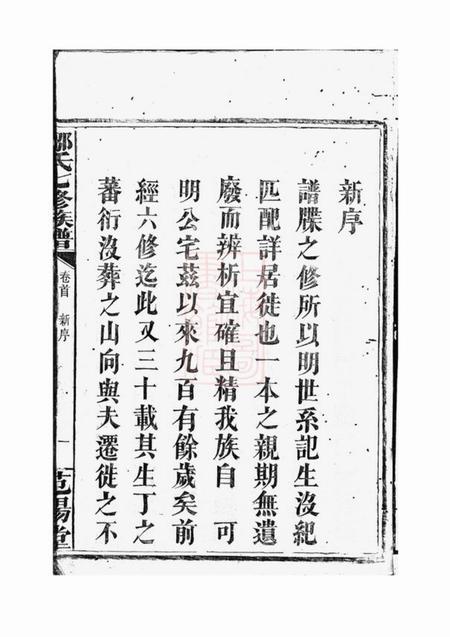 新序
譜牒之修所以明世系記生沒紀
匹配詳居徙也一本之親期無遺
廢而辨析宜確且精我族自 可
明公宅茲以來九百有餘歲矣前
經六修迄此又三十載其生丁之
蕃衍沒葬之山向與夫遷徙之不
氏七修族譜
卷首 新序
一
范陽堂